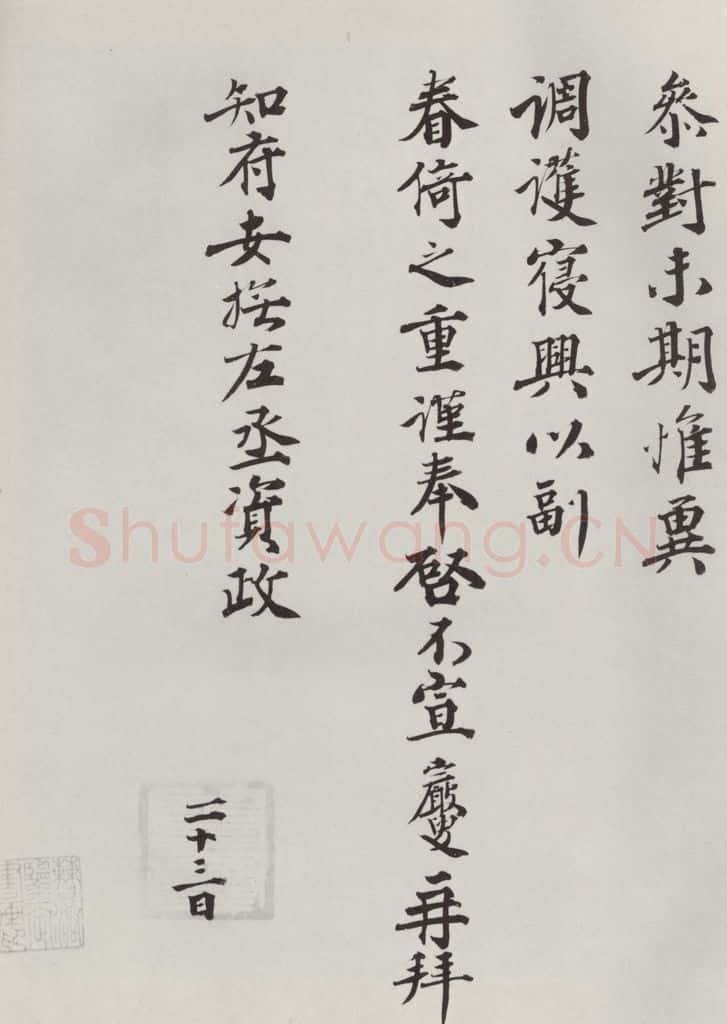 叅對未期惟冀
調護寢興以副
眷倚之重謹奉啓不宣巖叟再拜
知府安撫左丞資政
二十三日
Shufawang.CN